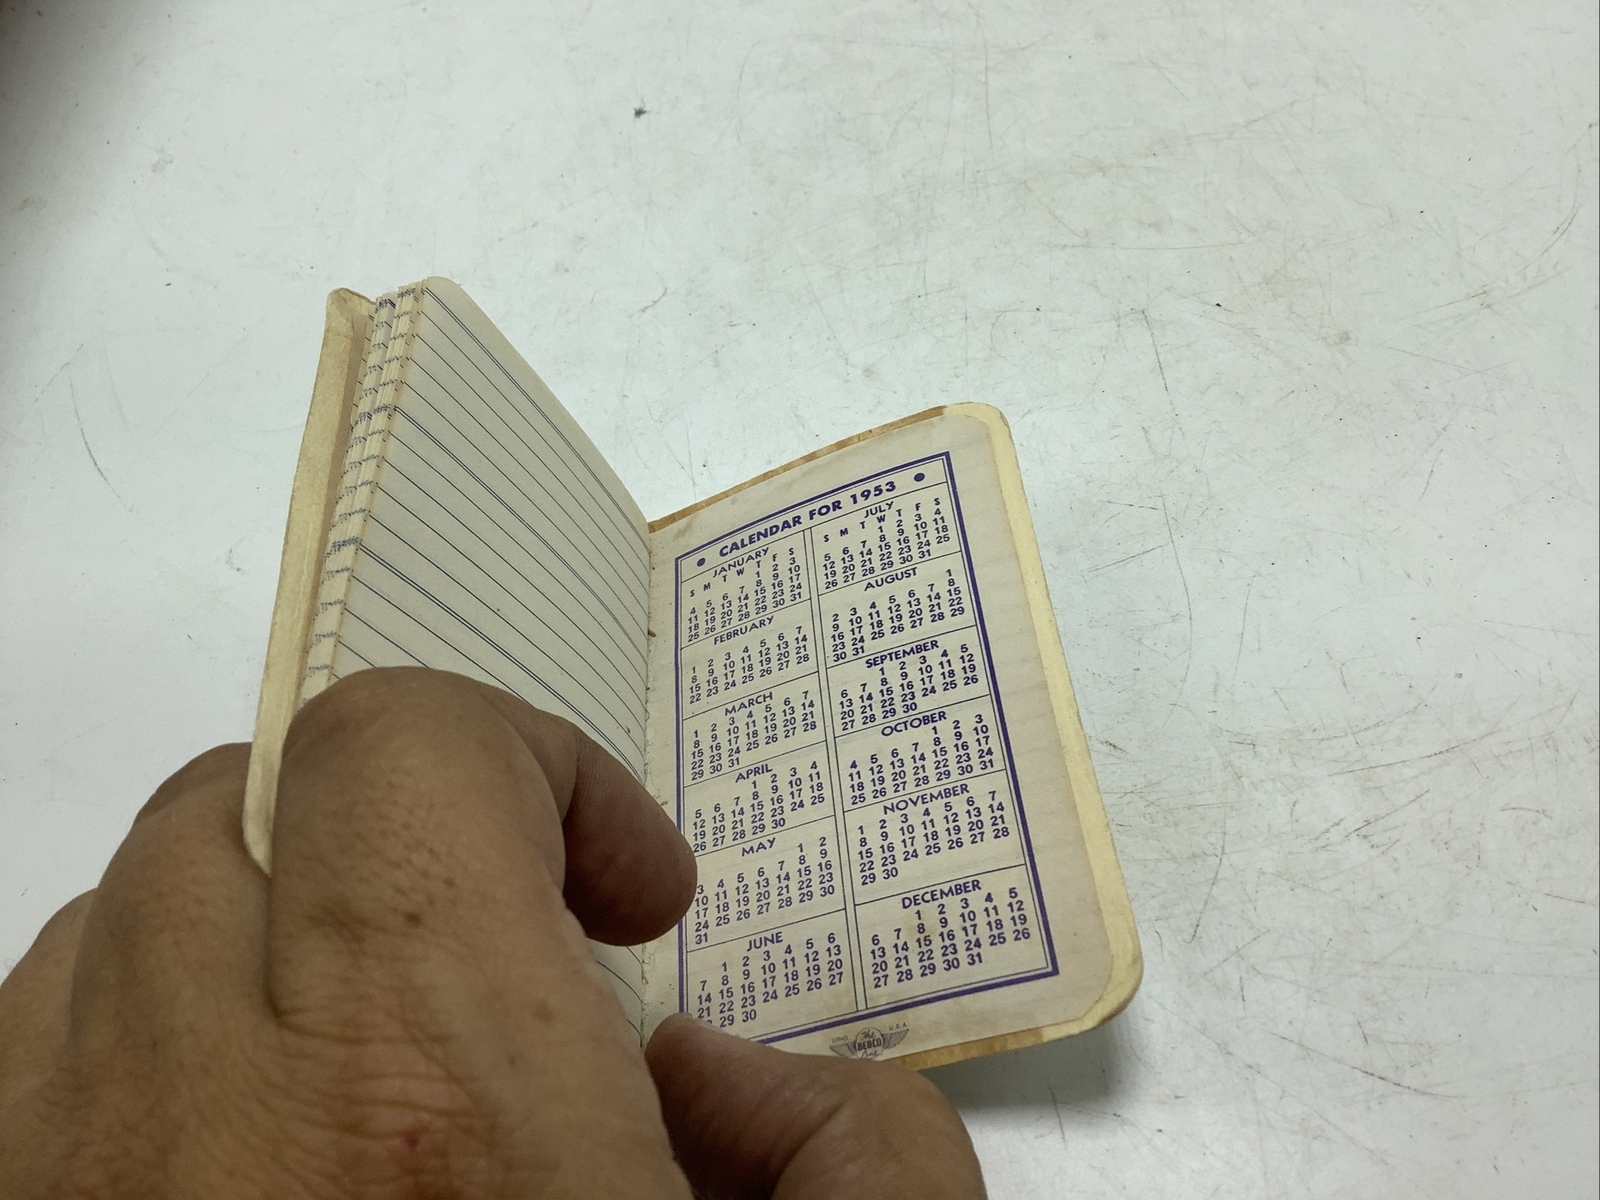 CALENDAR FOR 1953
JANUARY
S M T W T F S
1 2 3
4 5 6 7 8 9 10
11 12 13 14 15 16 17
18 19 20 21 22 23 24
25 26 27 28 29 30 31
FEBRUARY
1 2 3 4 5 6 7
8 9 10 11 12 13 14
15 16 17 18 19 20 21
22 23 24 25 26 27 28
MARCH
1 2 3 4 5 6 7
8 9 10 11 12 13 14
15 16 17 18 19 20 21
22 23 24 25 26 27 28
29 30 31
APRIL
1 2 3 4
5 6 7 8 9 10 11
12 13 14 15 16 17 18
19 20 21 22 23 24 25
26 27 28 29 30
MAY
1 2
3 4 5 6 7 8 9
10 11 12 13 14 15 16
17 18 19 20 21 22 23
24 25 26 27 28 29 30
31
JUNE
1 2 3 4 5 6
7 8 9 10 11 12 13
14 15 16 17 18 19 20
21 22 23 24 25 26 27
29 30
JULY
S M T W T F S
1 2 3 4
5 6 7 8 9 10 11
12 13 14 15 16 17 18
19 20 21 22 23 24 25
26 27 28 29 30 31
AUGUST
1
2 3 4 5 6 7 8
9 10 11 12 13 14 15
16 17 18 19 20 21 22
23 24 25 26 27 28 29
30 31
SEPTEMBER
1 2 3 4 5
6 7 8 9 10 11 12
13 14 15 16 17 18 19
20 21 22 23 24 25 26
27 28 29 30
OCTOBER
1 2 3
4 5 6 7 8 9 10
11 12 13 14 15 16 17
18 19 20 21 22 23 24
25 26 27 28 29 30 31
NOVEMBER
1 2 3 4 5 6 7
8 9 10 11 12 13 14
15 16 17 18 19 20 21
22 23 24 25 26 27 28
29 30
DECEMBER
1 2 3 4 5
6 7 8 9 10 11 12
13 14 15 16 17 18 19
20 21 22 23 24 25 26
27 28 29 30 31
LITHO The U.S.A.
BEBCO